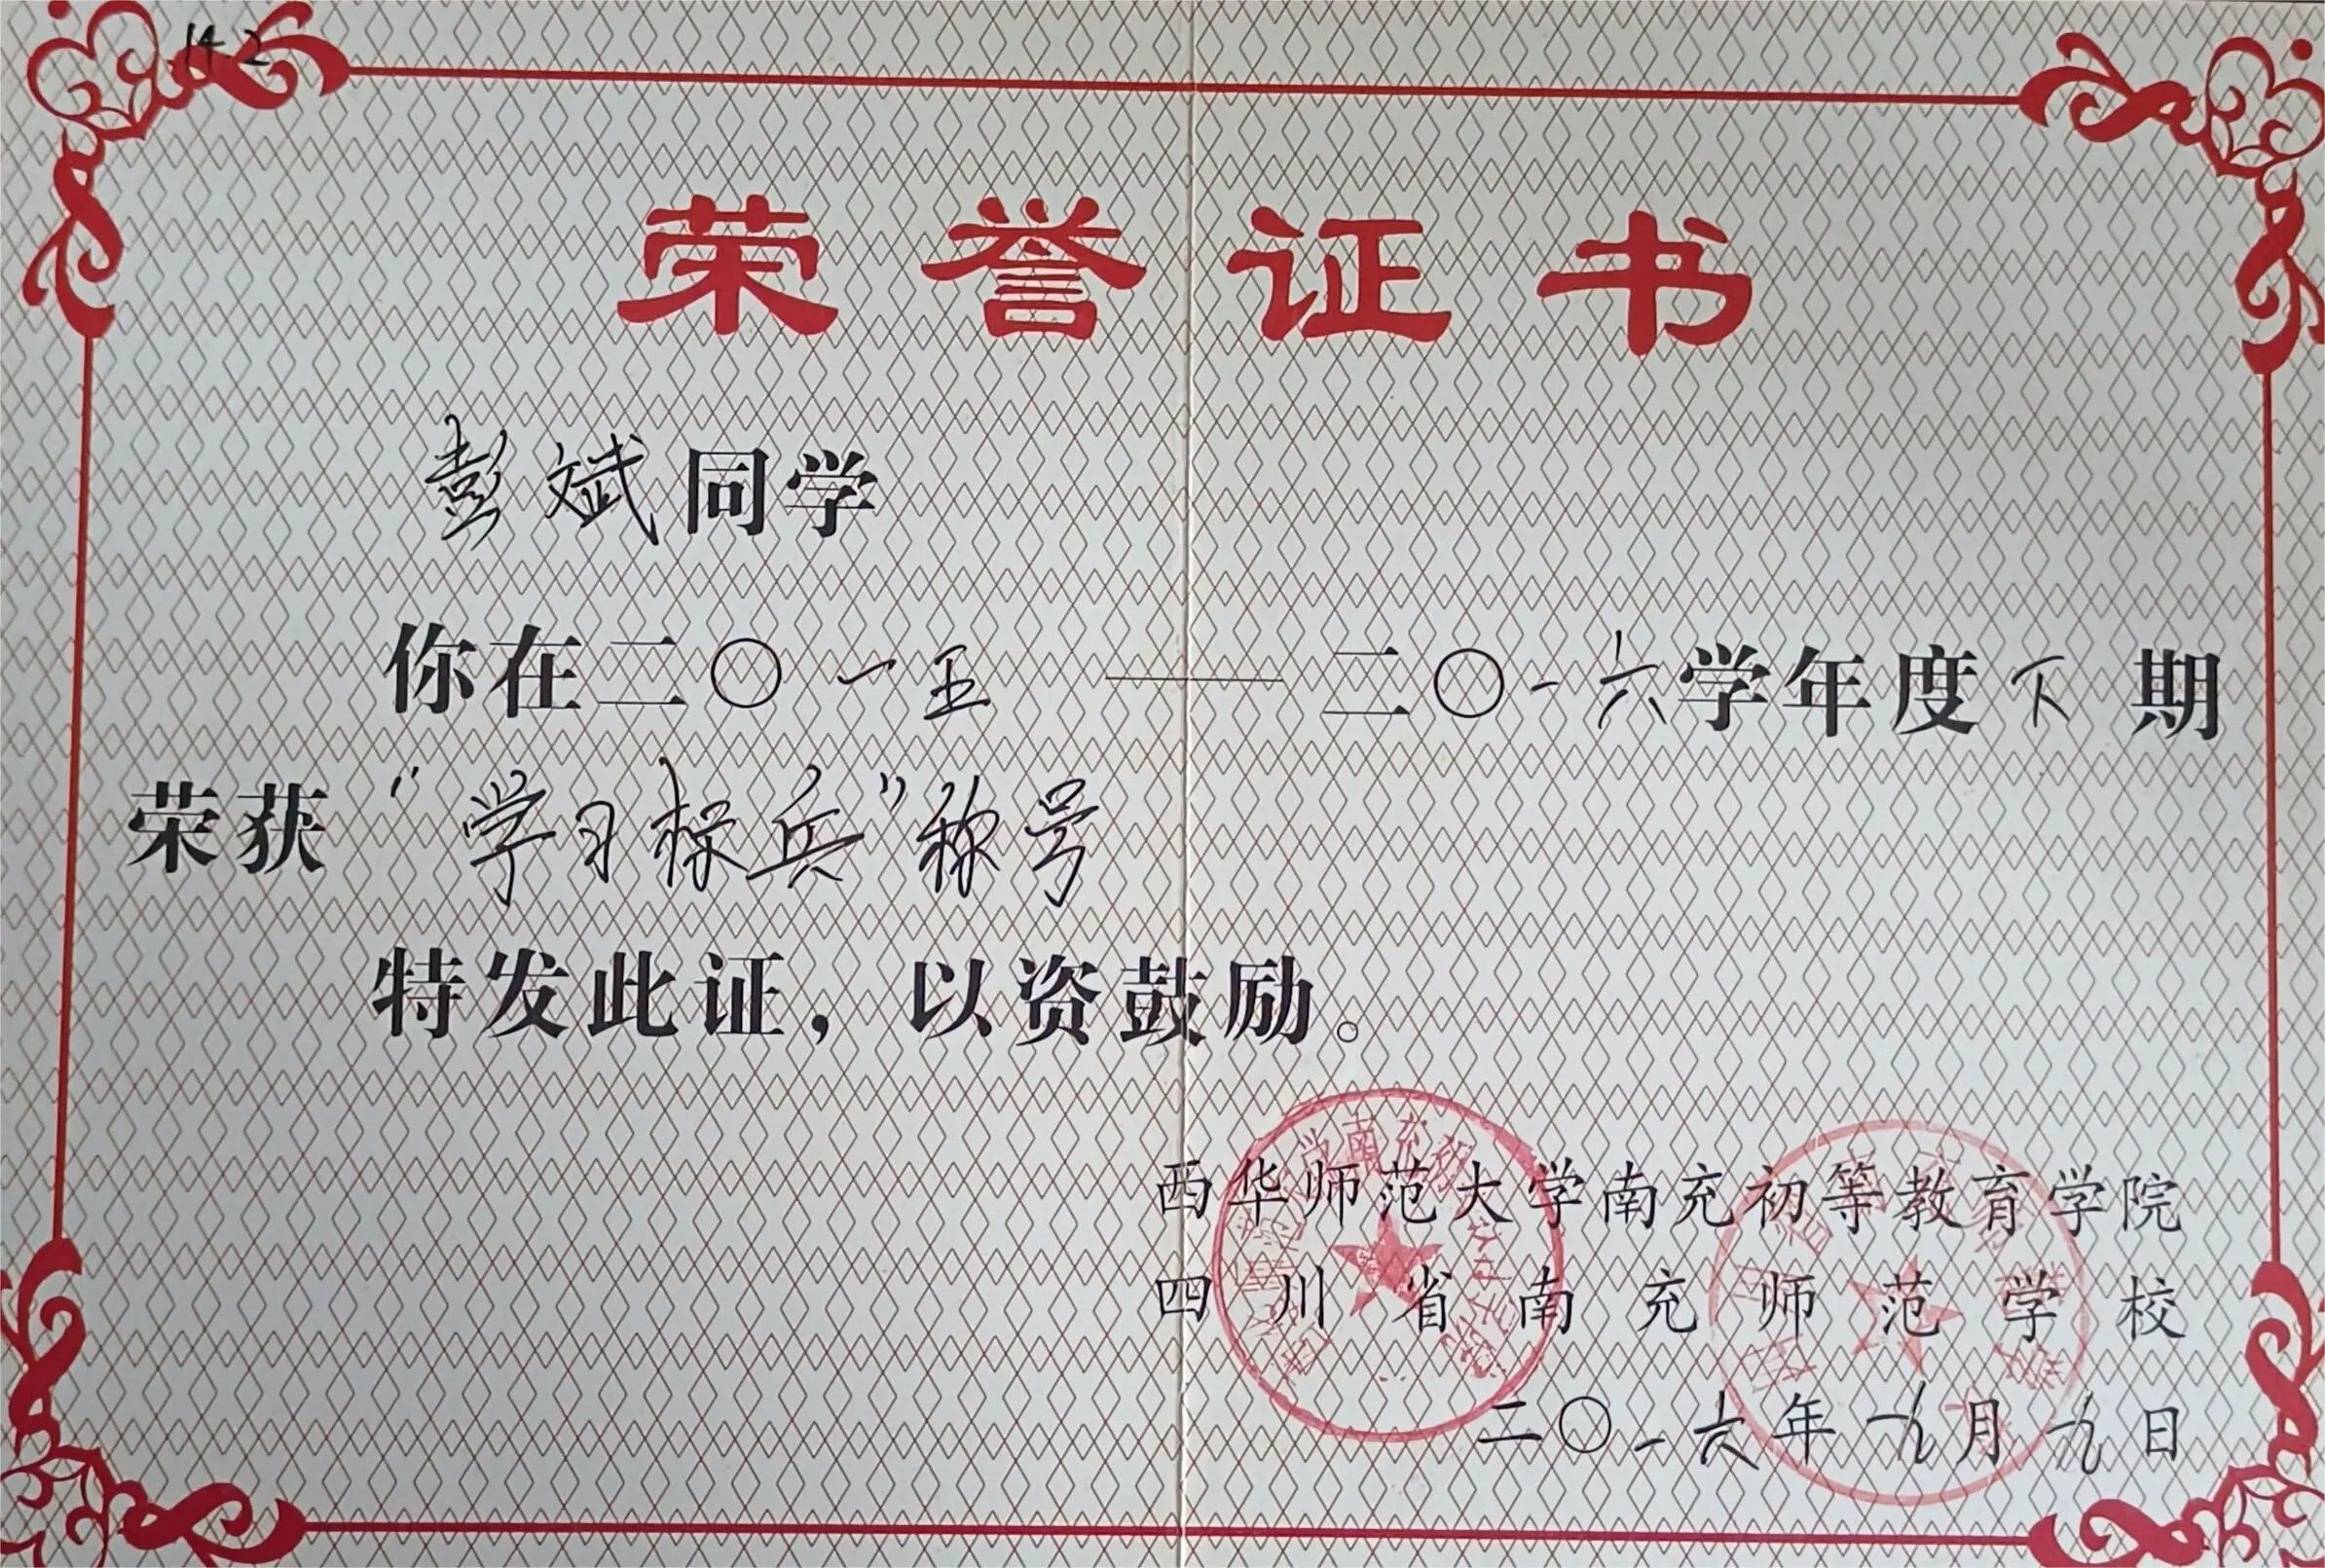 14.2
荣誉证书
彭斌同学
你在二〇一五——二〇一六学年度下期
荣获“学习标兵”称号
特发此证，以资鼓励。
西华师范大学南充初等教育学院
四川省南充师范学校
二〇一六年九月九日